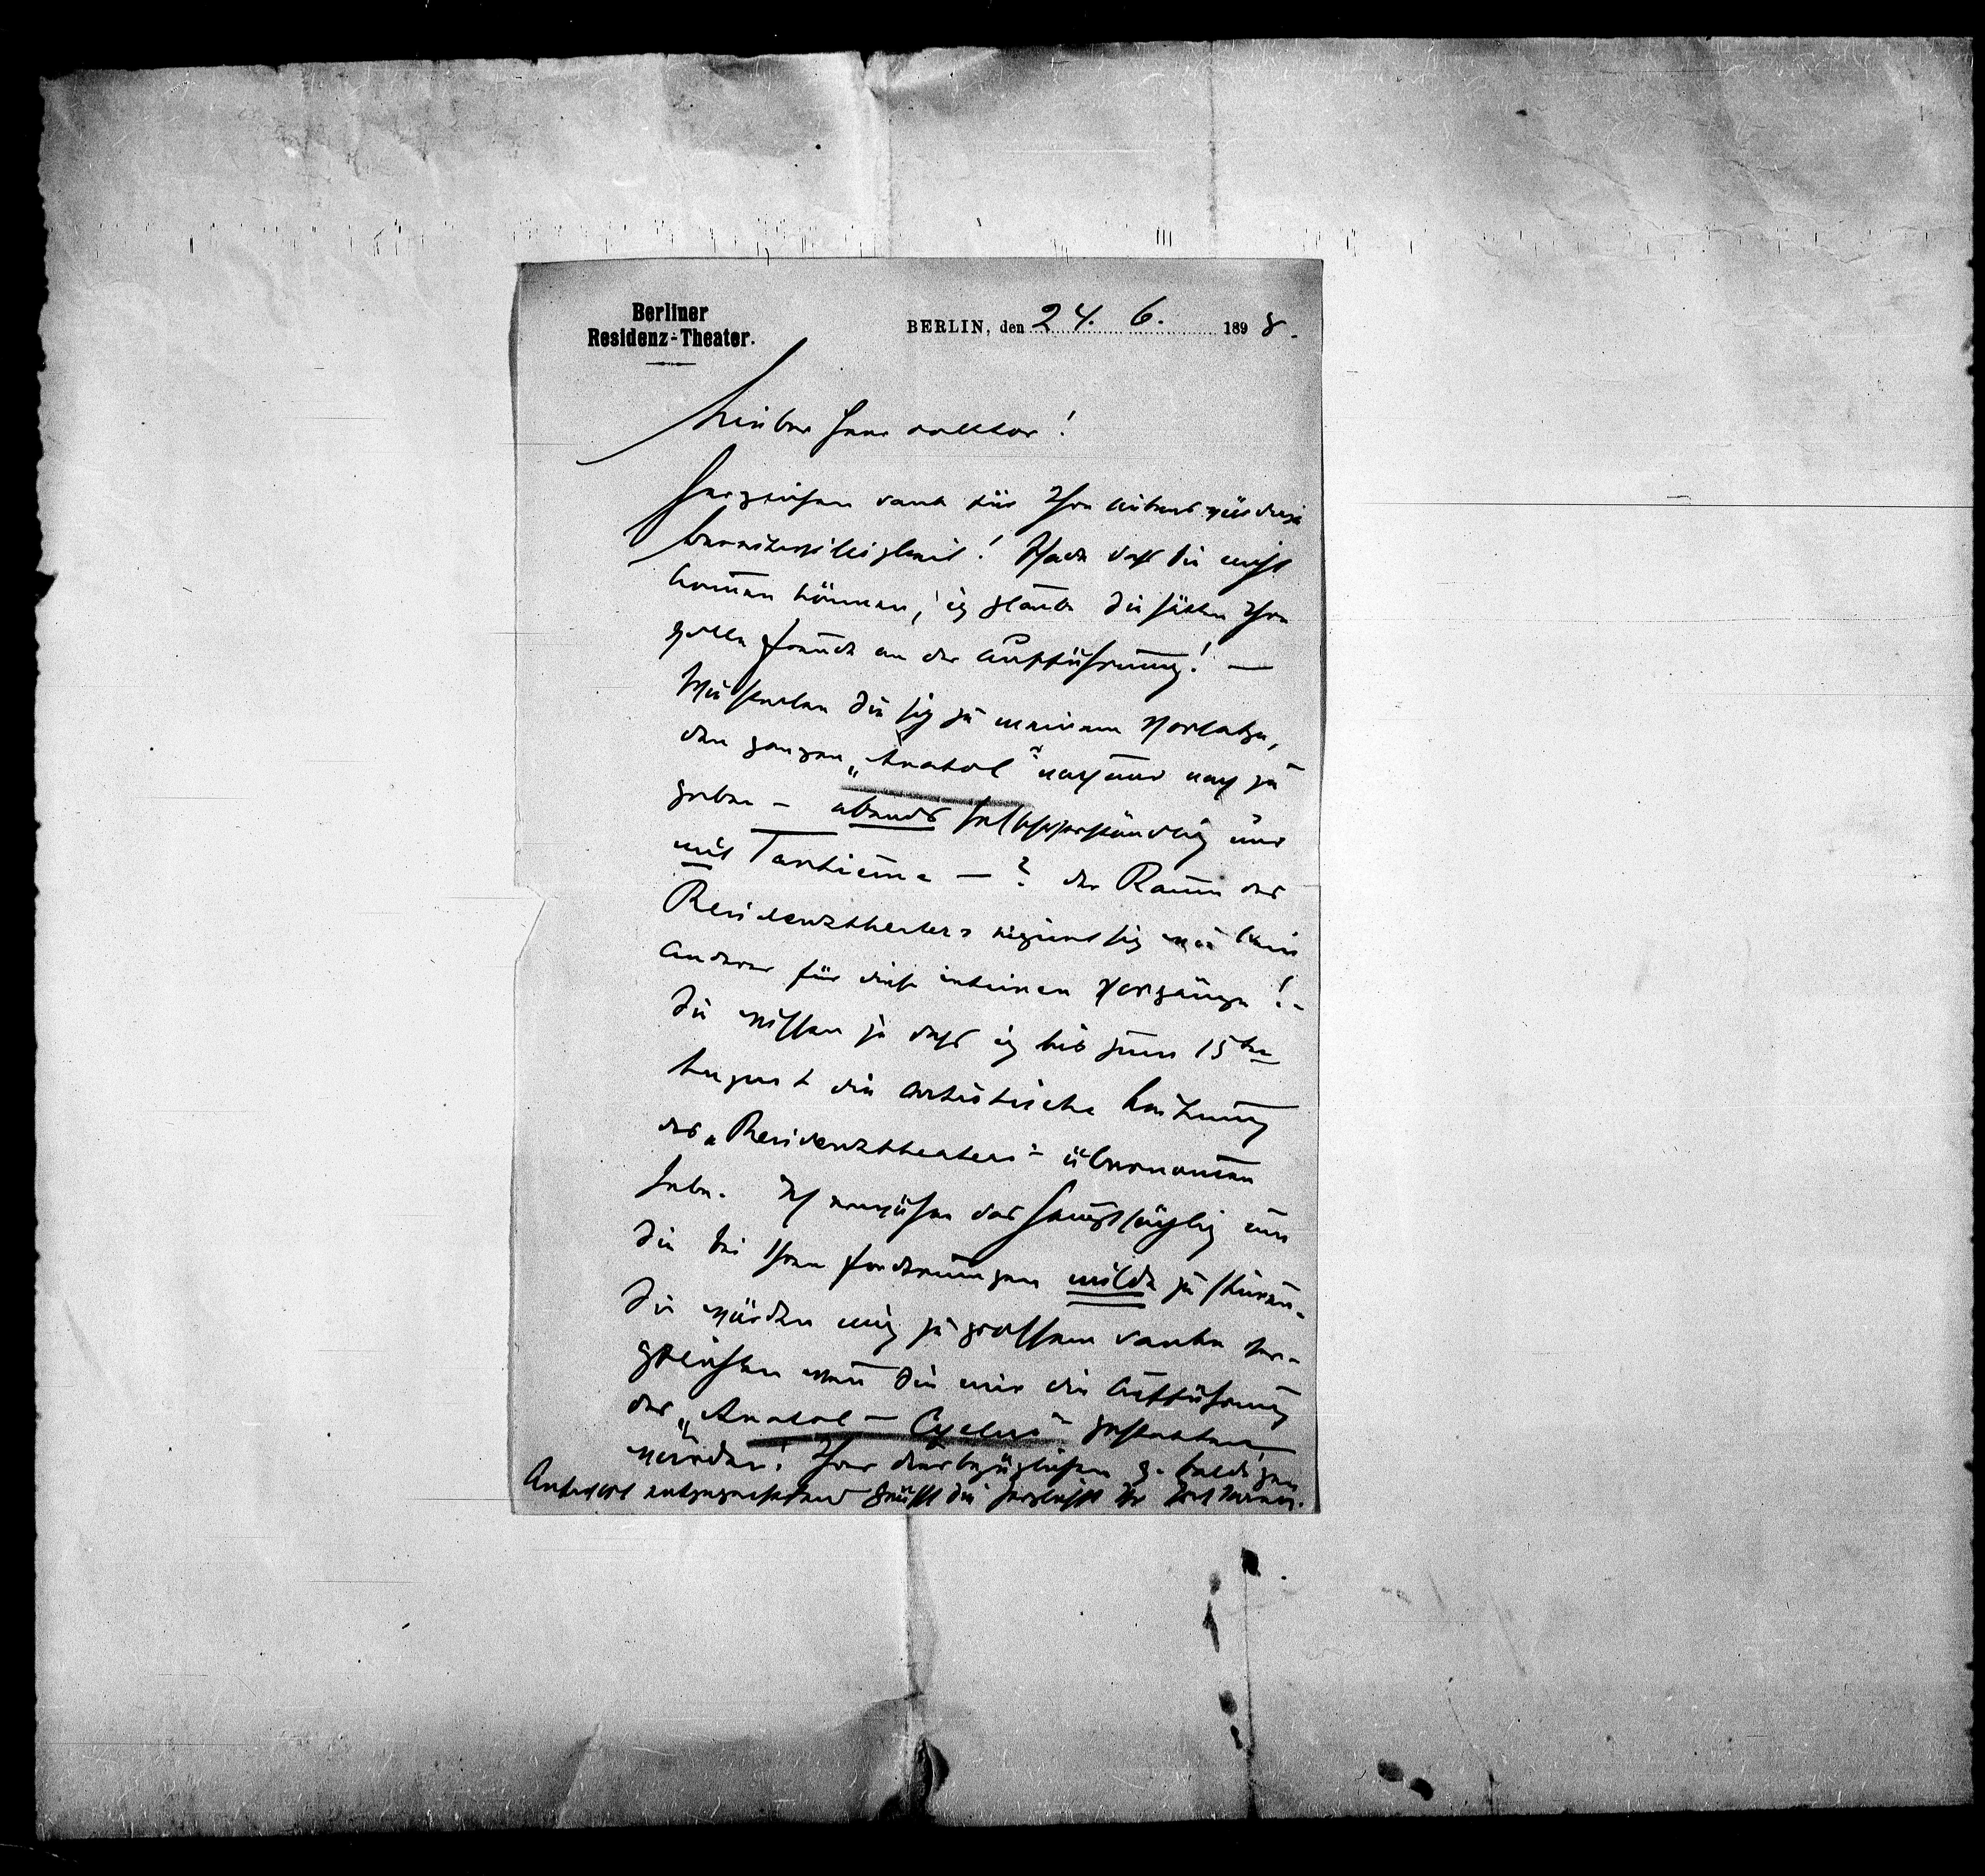 Berliner
Residenz-Theater.
BERLIN, den 24. 6. 1898.
Lieber Herr Doktor!
Herzlichen Dank für Ihre liebenswürdige
Bereitwilligkeit! Schade daß Sie nicht
kom̅en können, ich glaube Sie hätten Ihre
helle Freude an der Aufführung! —
Wie stellen Sie sich zu meinem Vorhaben,
den ganzen „Anatol“ nach und nach zu
geben — abends selbstverständlich und
mit Tantieme — ? Der Raum des
Residenztheaters eignet sich wie kein
anderer für diese intimen Vorgänge! -
Sie wissen ja daß ich bis zum 15ten
August die artistische Leitung
des „Residenztheaters“ übernom̅en
habe. Ich erwähne das hauptsächlich um
Sie bei Ihren Forderungen milde zu stim̅en.
Sie würden mich zu großem Danke ver-
pflichten wen̅ Sie mir die Aufführung
des „Anatol — Cyclus“ gestatten
würden! Ihrer diesbezüglichen g. baldigen
Antwort entgegensehend grüßt Sie herzlichst Ihr